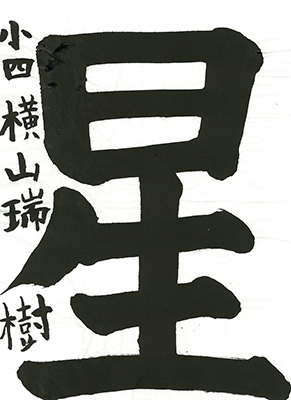 星
小四 横山瑞樹